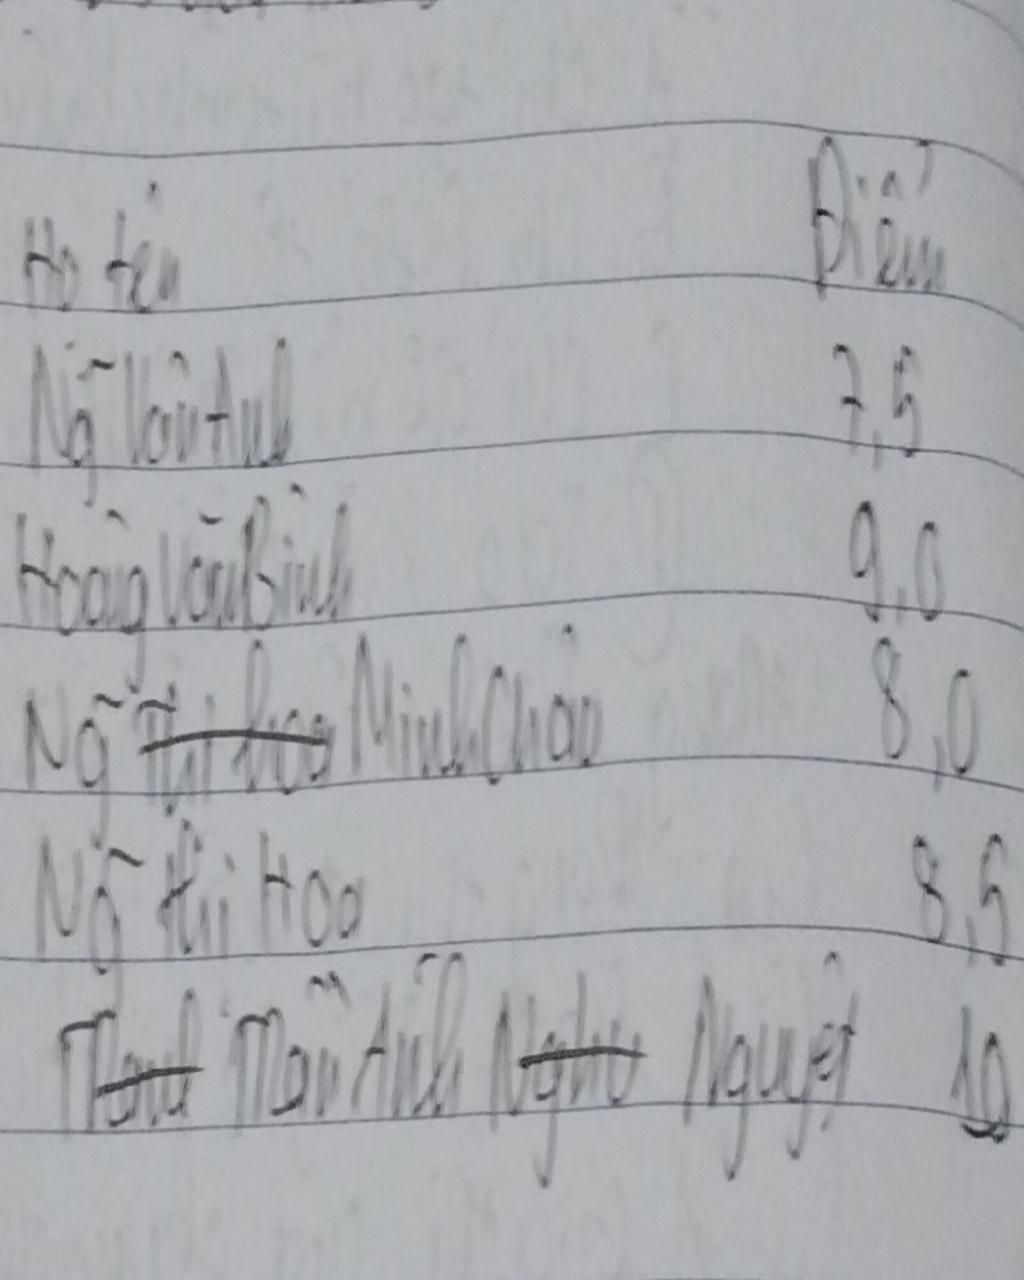 Họ tên Điểm
Ng~ Vân Anh 7,5
Hoàng Văn Bình 9,0
Ng~ Thị Hoa Minh Châu 8,0
Ng~ Thị Hoa 8,5
Trần Ánh Nguyệt 10